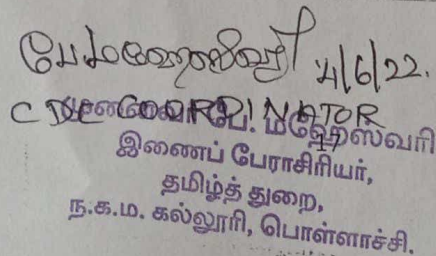 பே.மகேஸ்வரி 4/6/22.
CDC COORDINATOR
பே. மகேஸ்வரி
இணைப் பேராசிரியர்,
தமிழ்த் துறை,
ந.க.ம. கல்லூரி, பொள்ளாச்சி.